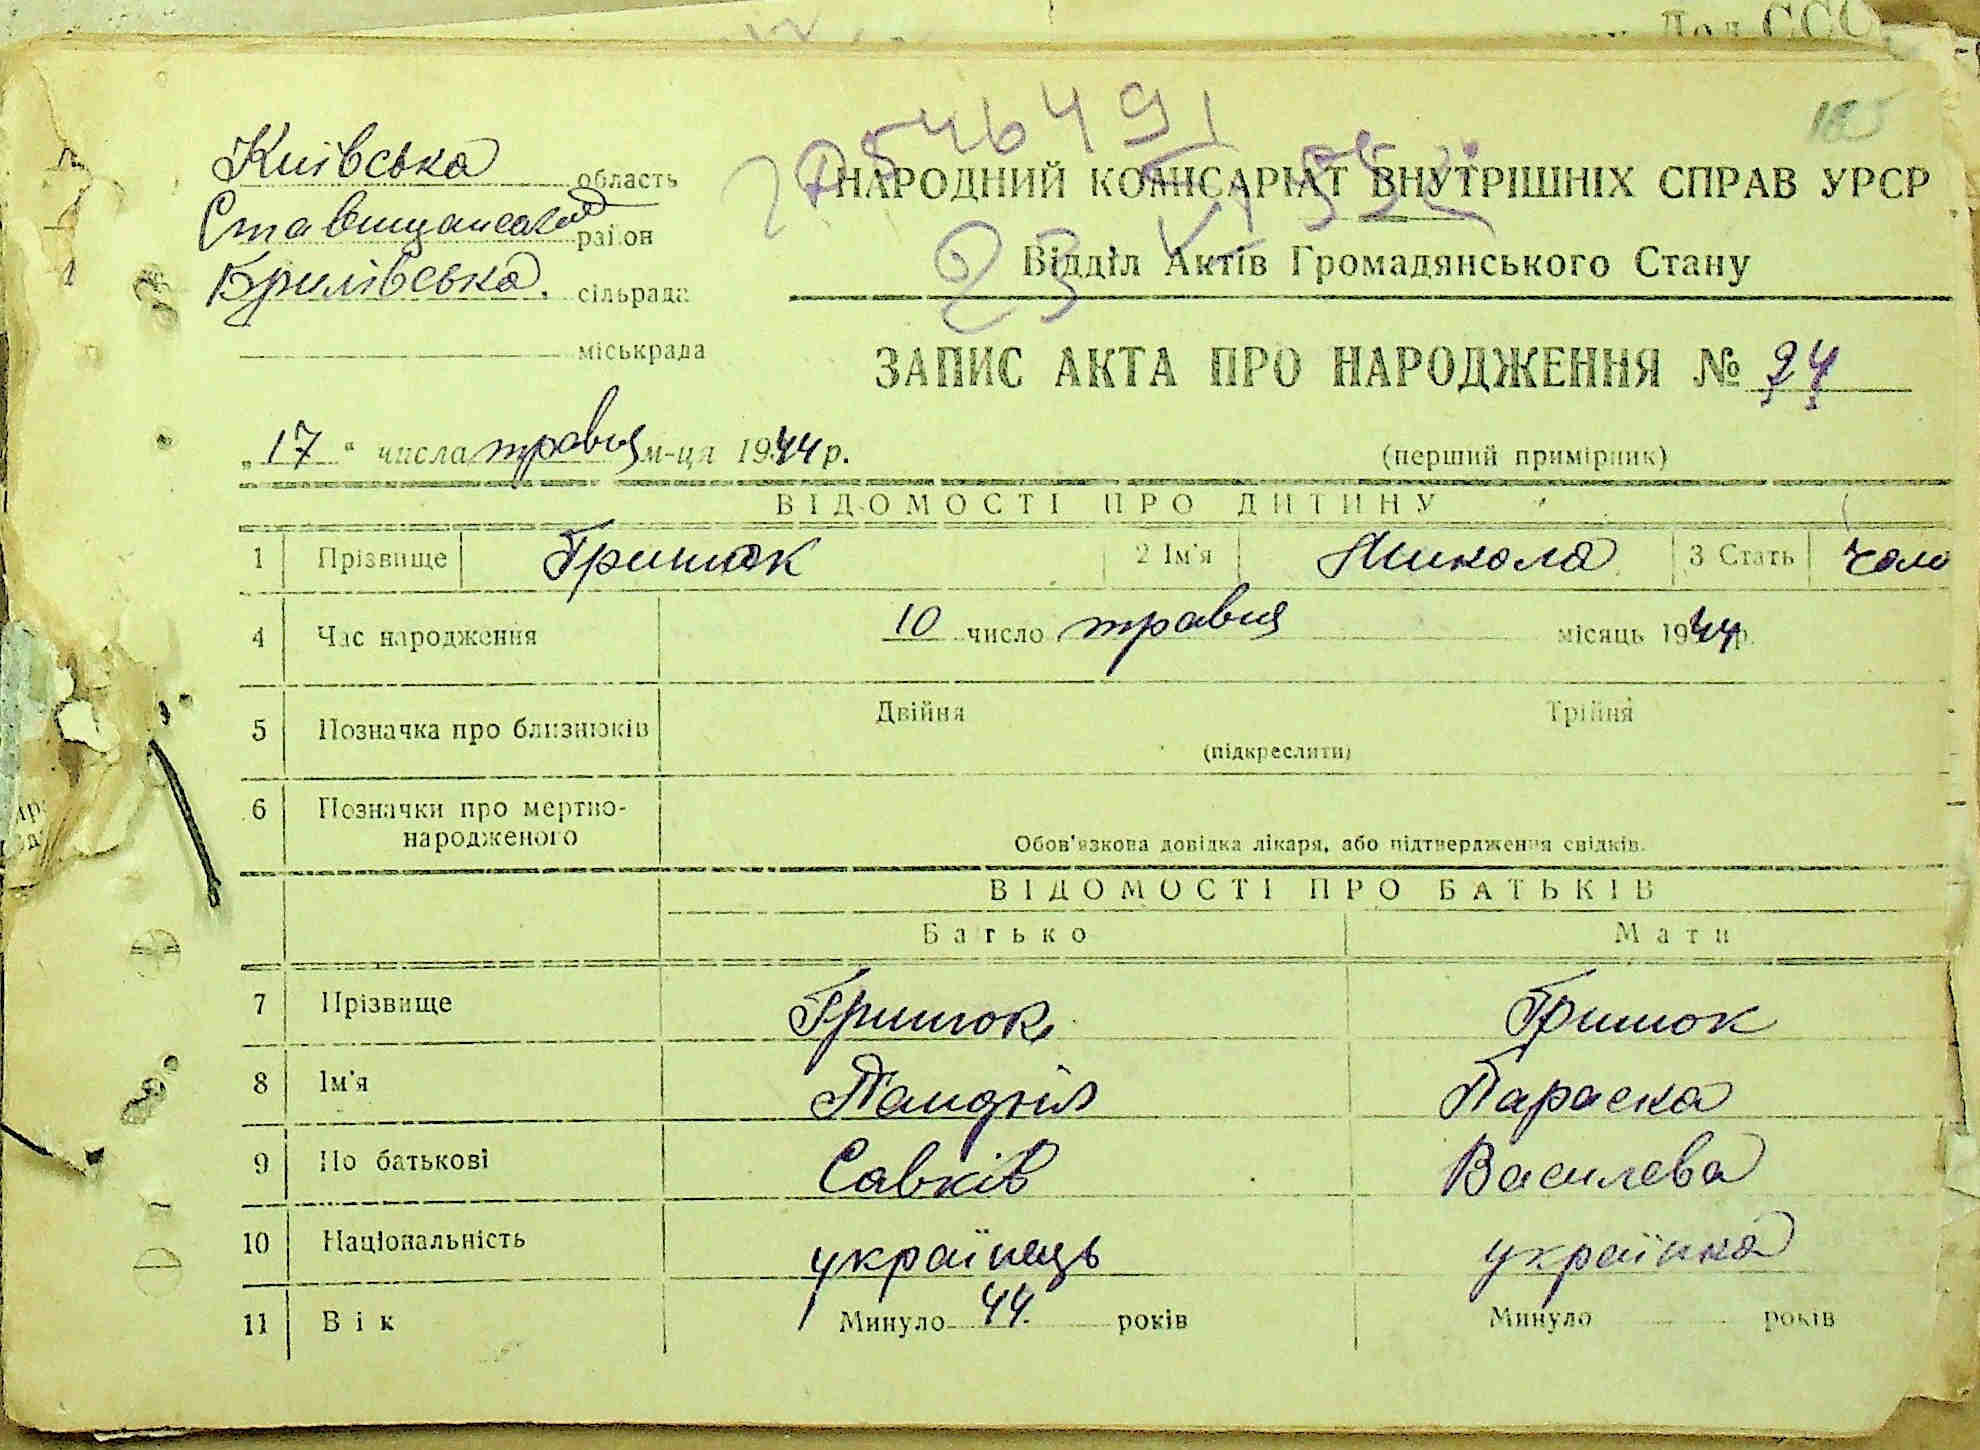 Київська область
НАРОДНИЙ КОМІСАРІАТ ВНУТРІШНІХ СПРАВ УРСР
район
сільрада
Відділ Актів Громадянського Стану
міськрада
ЗАПИС АКТА ПРО НАРОДЖЕННЯ № 24
„17“ числа травня м-ця 1944 р.
(перший примірник)
ВІДОМОСТІ ПРО ДИТИНУ
1 Прізвище Гришок 2 Ім'я Микола 3 Стать Чоло
4 Час народження 10 число травня місяць 1944 р.
5 Позначка про близнюків Двійня Трійня
(підкреслити)
6 Позначки про мертво-
народженого
Обов'язкова довідка лікаря, або підтвердження свідків.
ВІДОМОСТІ ПРО БАТЬКІВ
Батько Мати
7 Прізвище Гришок Гришок
8 Ім'я Параска
9 По батькові Савків Василева
10 Національність українець українка
11 Вік Минуло 44 років Минуло років